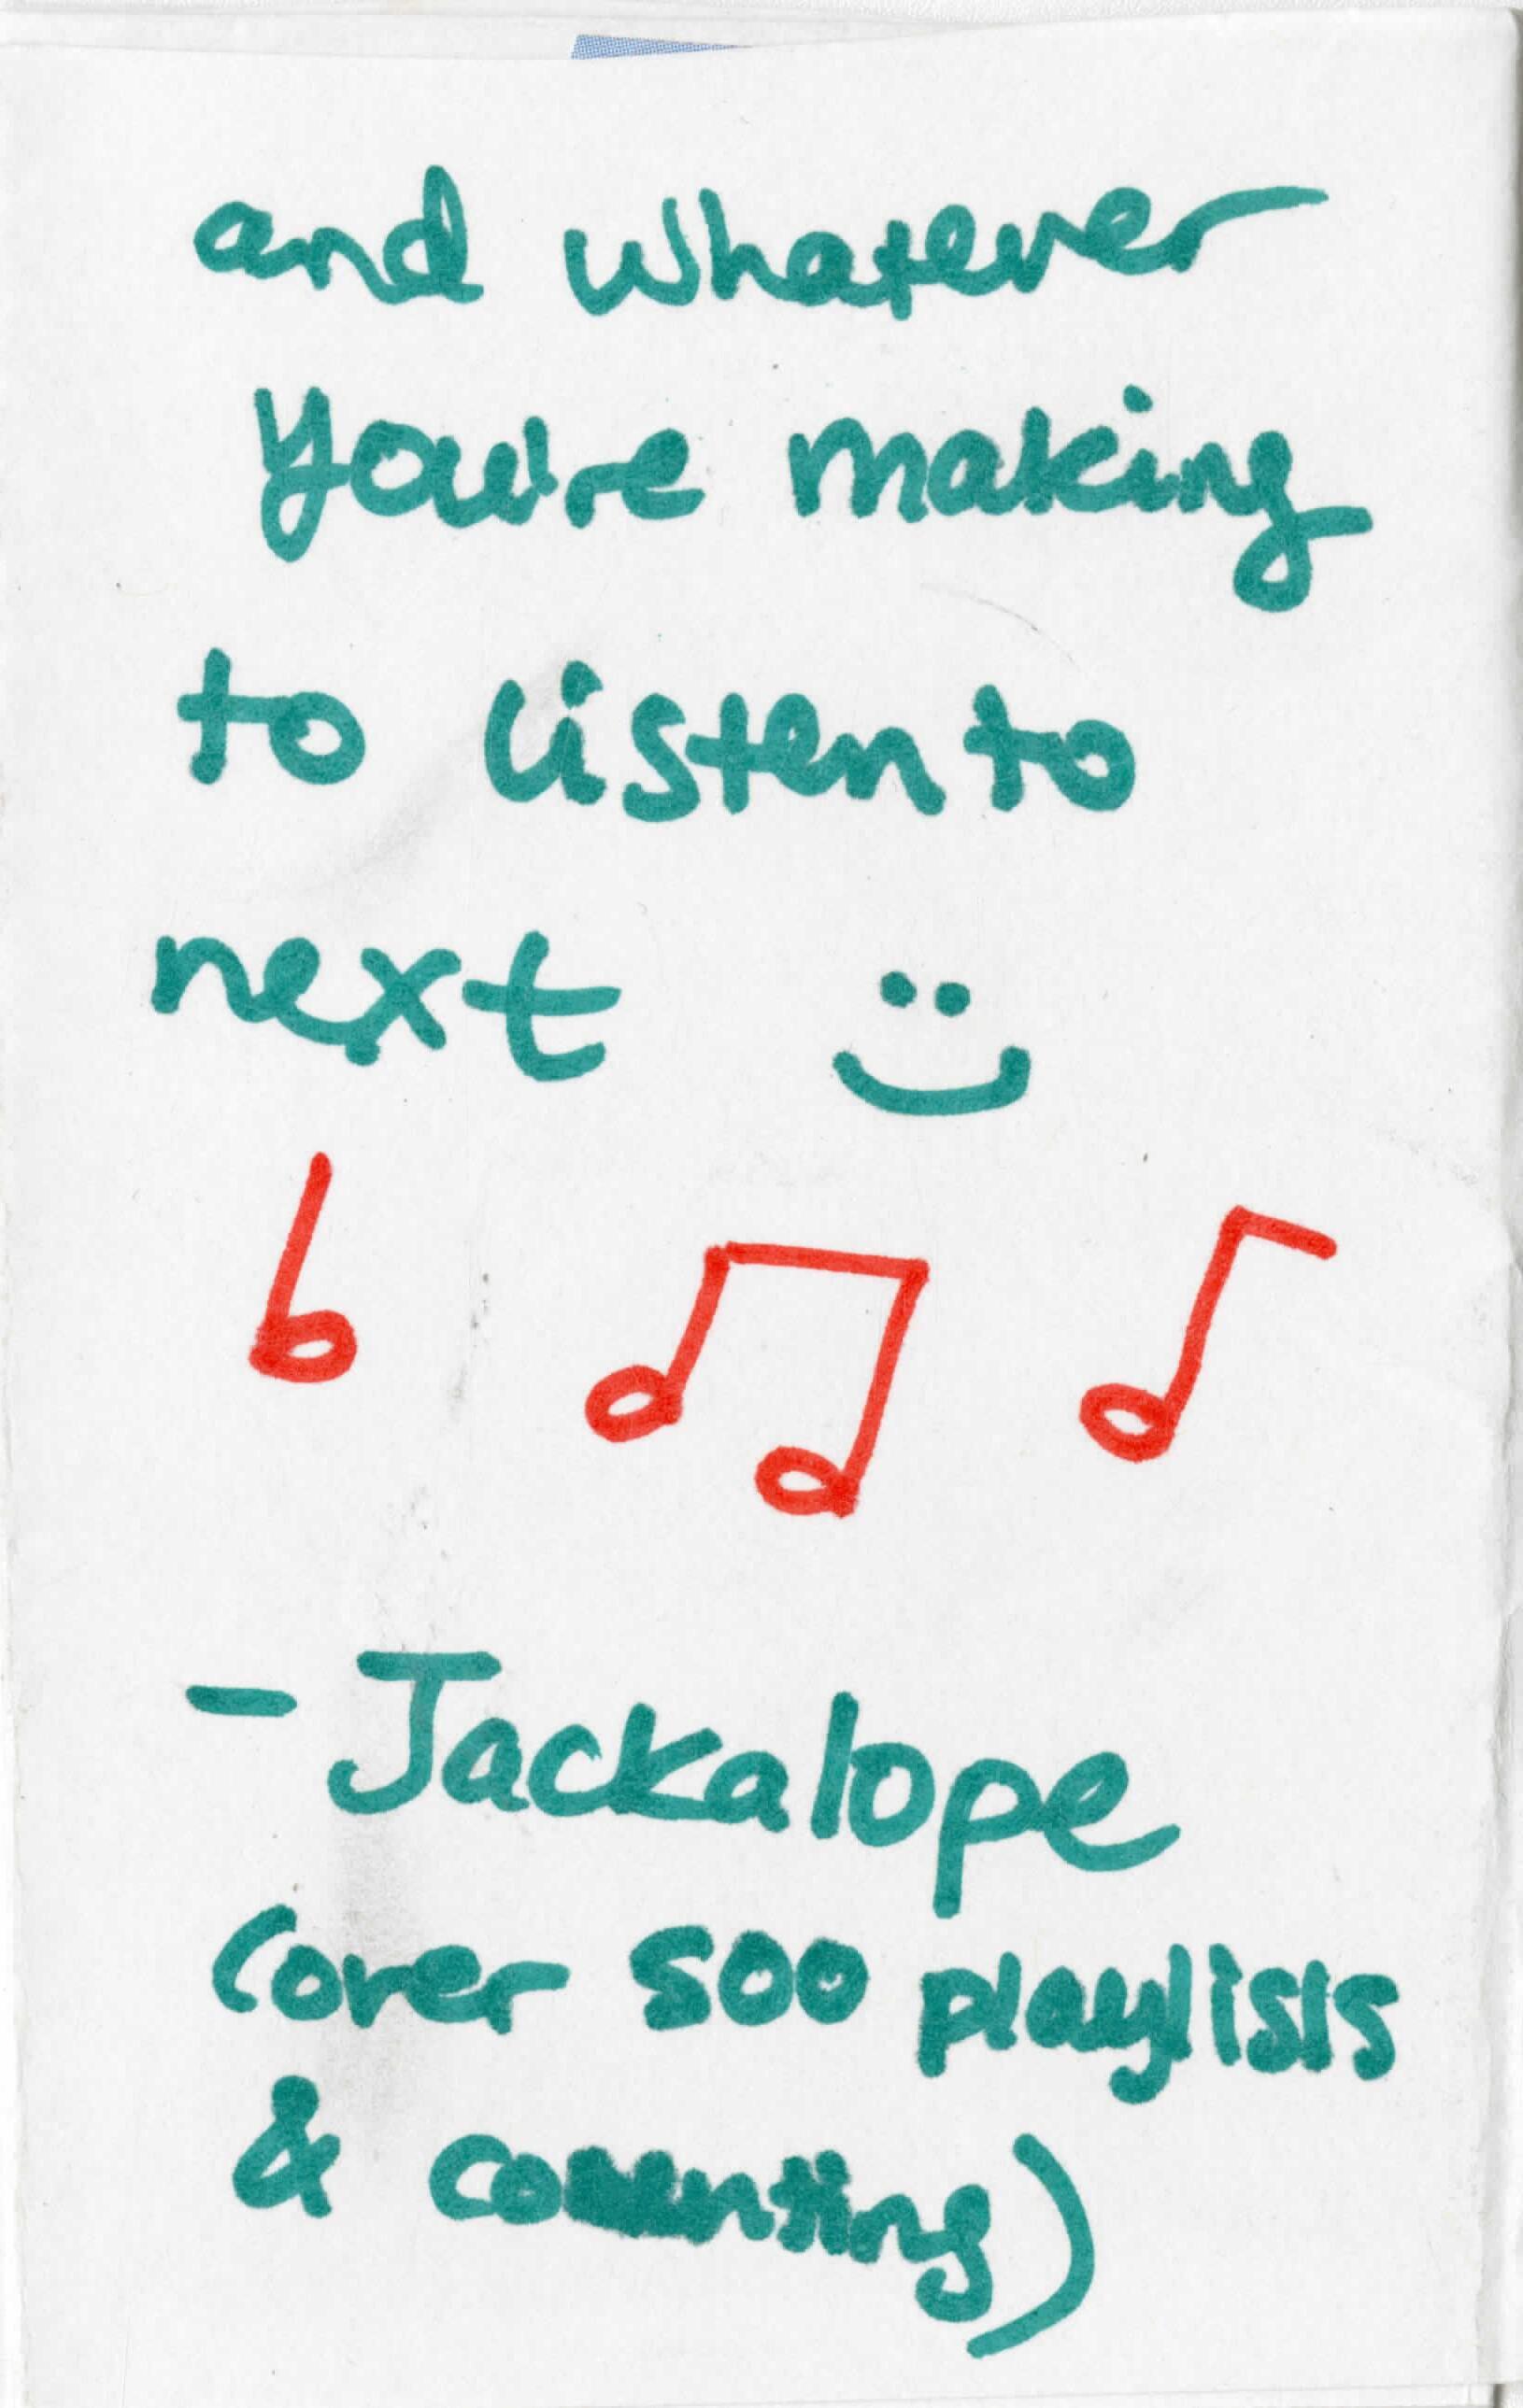 and whatever
you're making
to listen to
next :)
- Jackalope
(over 500 playlists
& counting)